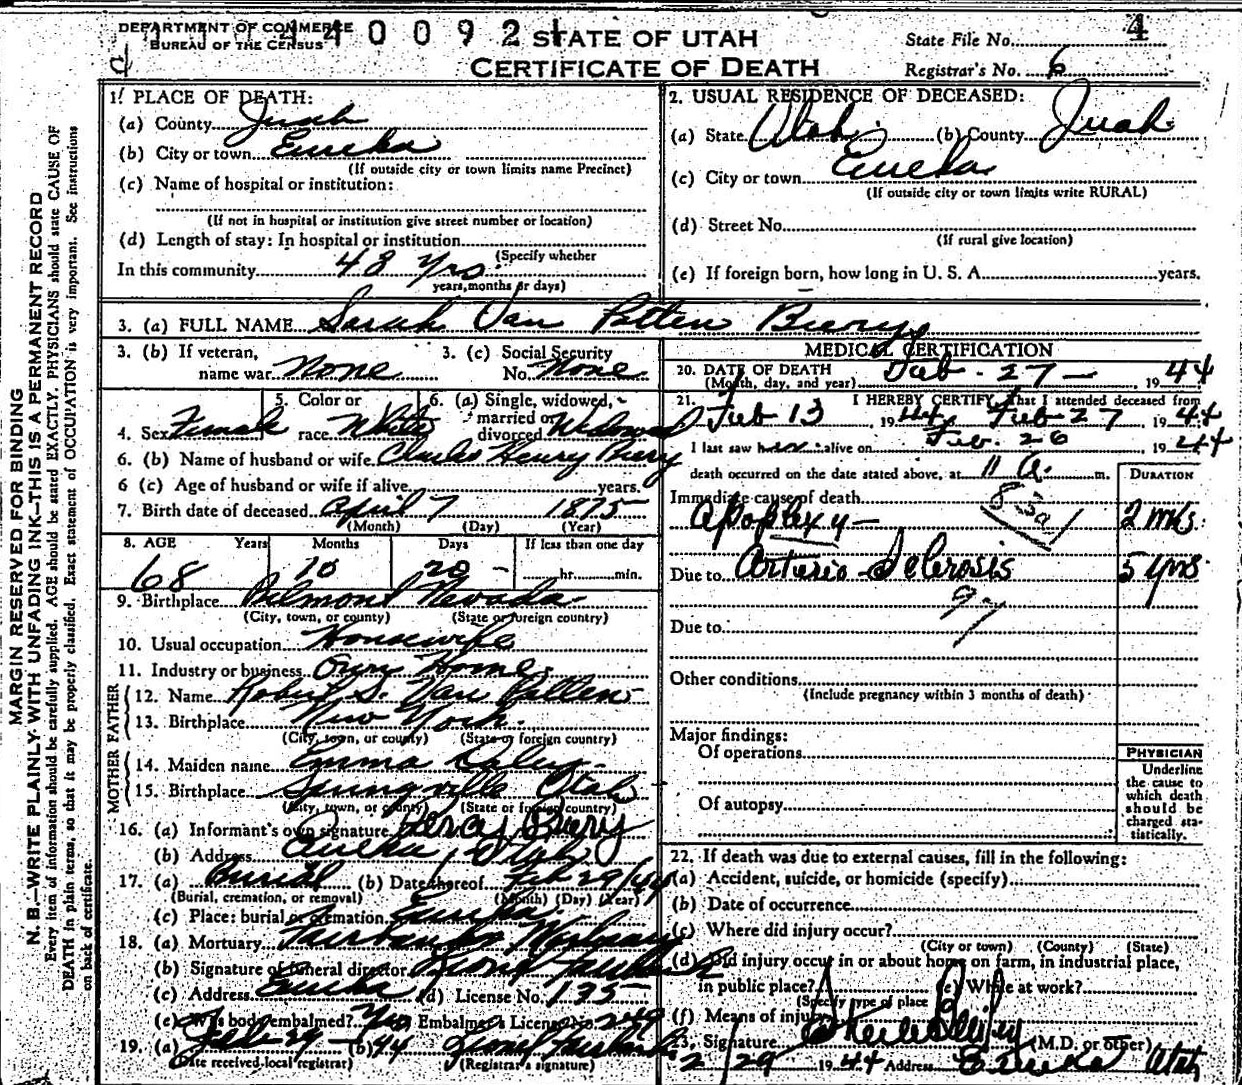 DEPARTMENT OF COMMERCE
BUREAU OF THE CENSUS
4 4 0 0 9 2
STATE OF UTAH
CERTIFICATE OF DEATH
State File No. 4
Registrar's No. 6
1. PLACE OF DEATH:
(a) County Juab
(b) City or town Eureka
(If outside city or town limits name Precinct)
(c) Name of hospital or institution:
(If not in hospital or institution give street number or location)
(d) Length of stay: In hospital or institution
(Specify whether
In this community 48 yrs.
years, months or days)
2. USUAL RESIDENCE OF DECEASED:
(a) State Utah (b) County Juab
(c) City or town Eureka
(If outside city or town limits write RURAL)
(d) Street No.
(If rural give location)
(e) If foreign born, how long in U. S. A. years.
3. (a) FULL NAME Sarah Van Patten Biery
3. (b) If veteran, name war None
3. (c) Social Security No. None
4. Sex Female
5. Color or race White
6. (a) Single, widowed, married or divorced Widowed
6. (b) Name of husband or wife Charles Henry Biery
6 (c) Age of husband or wife if alive years.
7. Birth date of deceased April 7 1875
(Month) (Day) (Year)
8. AGE Years Months Days If less than one day
68 10 20 hr. min.
9. Birthplace Belmont Nevada
(City, town, or county) (State or foreign country)
10. Usual occupation Housewife
11. Industry or business Own Home
FATHER
12. Name Robert S. Van Patten
13. Birthplace New York
(City, town, or county) (State or foreign country)
MOTHER
14. Maiden name Emma
15. Birthplace Springville Utah
(City, town, or county) (State or foreign country)
16. (a) Informant's own signature Percy Biery
(b) Address Eureka, Utah
17. (a) Burial (b) Date thereof Feb 29/44
(Burial, cremation, or removal) (Month) (Day) (Year)
(c) Place: burial or cremation Eureka
18. (a) Mortuary Fairbanks
(b) Signature of funeral director Fairbanks
(c) Address Eureka (d) License No. 135
(e) Was body embalmed? Yes Embalmer's License No. 249
19. (a) Feb 29-44 (b) Fairbanks
(Date received local registrar) (Registrar's signature)
MEDICAL CERTIFICATION
20. DATE OF DEATH Feb. 27 - , 1944
(Month, day, and year)
21. I HEREBY CERTIFY, That I attended deceased from
Feb 13 1944, Feb 27 1944
I last saw her alive on Feb. 26 1944
death occurred on the date stated above, at 11 a. m.
DURATION
Immediate cause of death
83a
Apoplexy - 2 wks.
Due to Arterio-Sclerosis 5 yrs.
97
Due to
Other conditions
(Include pregnancy within 3 months of death)
Major findings:
Of operations
Of autopsy
PHYSICIAN
Underline
the cause to
which death
should be
charged sta-
tistically.
22. If death was due to external causes, fill in the following:
(a) Accident, suicide, or homicide (specify)
(b) Date of occurrence
(c) Where did injury occur?
(City or town) (County) (State)
(d) Did injury occur in or about home on farm, in industrial place,
in public place? (e) While at work?
(Specify type of place
(f) Means of injury
23. Signature (M.D. or other)
2/29 1944 Address Eureka Utah
MARGIN RESERVED FOR BINDING
N. B.—WRITE PLAINLY WITH UNFADING INK—THIS IS A PERMANENT RECORD
Every item of information should be carefully supplied. AGE should be stated EXACTLY. PHYSICIANS should state CAUSE OF
DEATH in plain terms, so that it may be properly classified. Exact statement of OCCUPATION is very important. See instructions
on back of certificate.